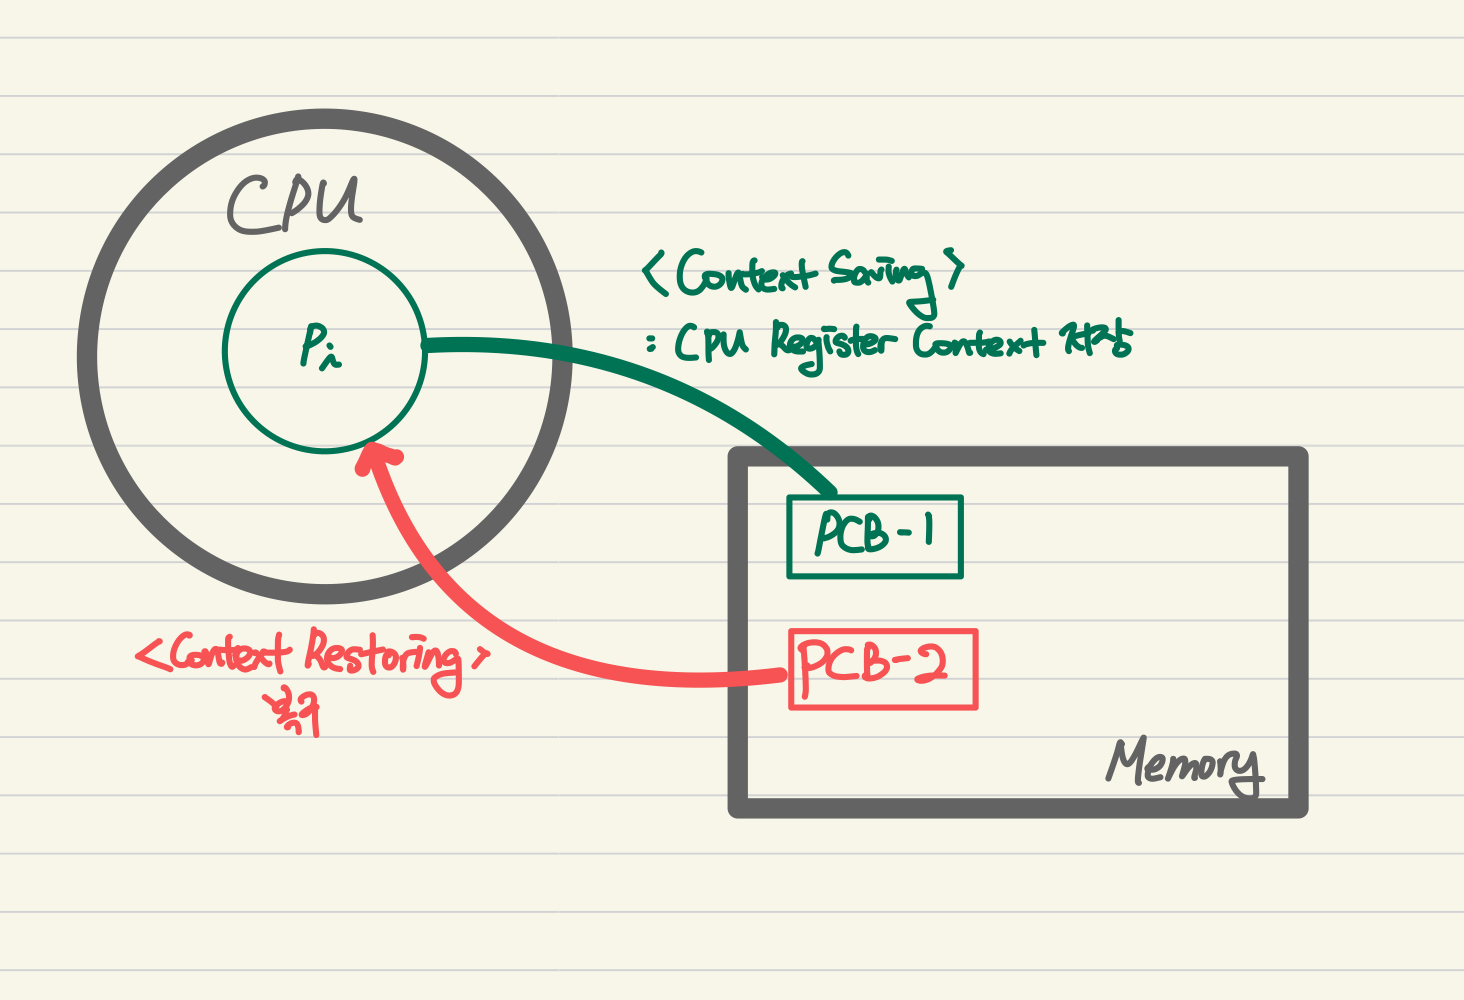 CPU
Pi
<Context Saving>
: CPU Register Context 저장
PCB-1
<Context Restoring>
복귀
PCB-2
Memory